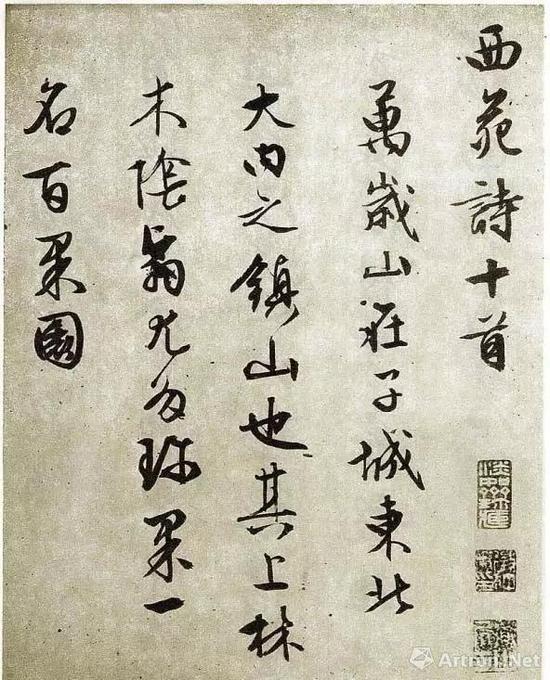 西苑詩十首
萬歲山在子城東北
大内之鎮山也其上林
木陰翳尤多珍果一
名百果園
Artron.Net